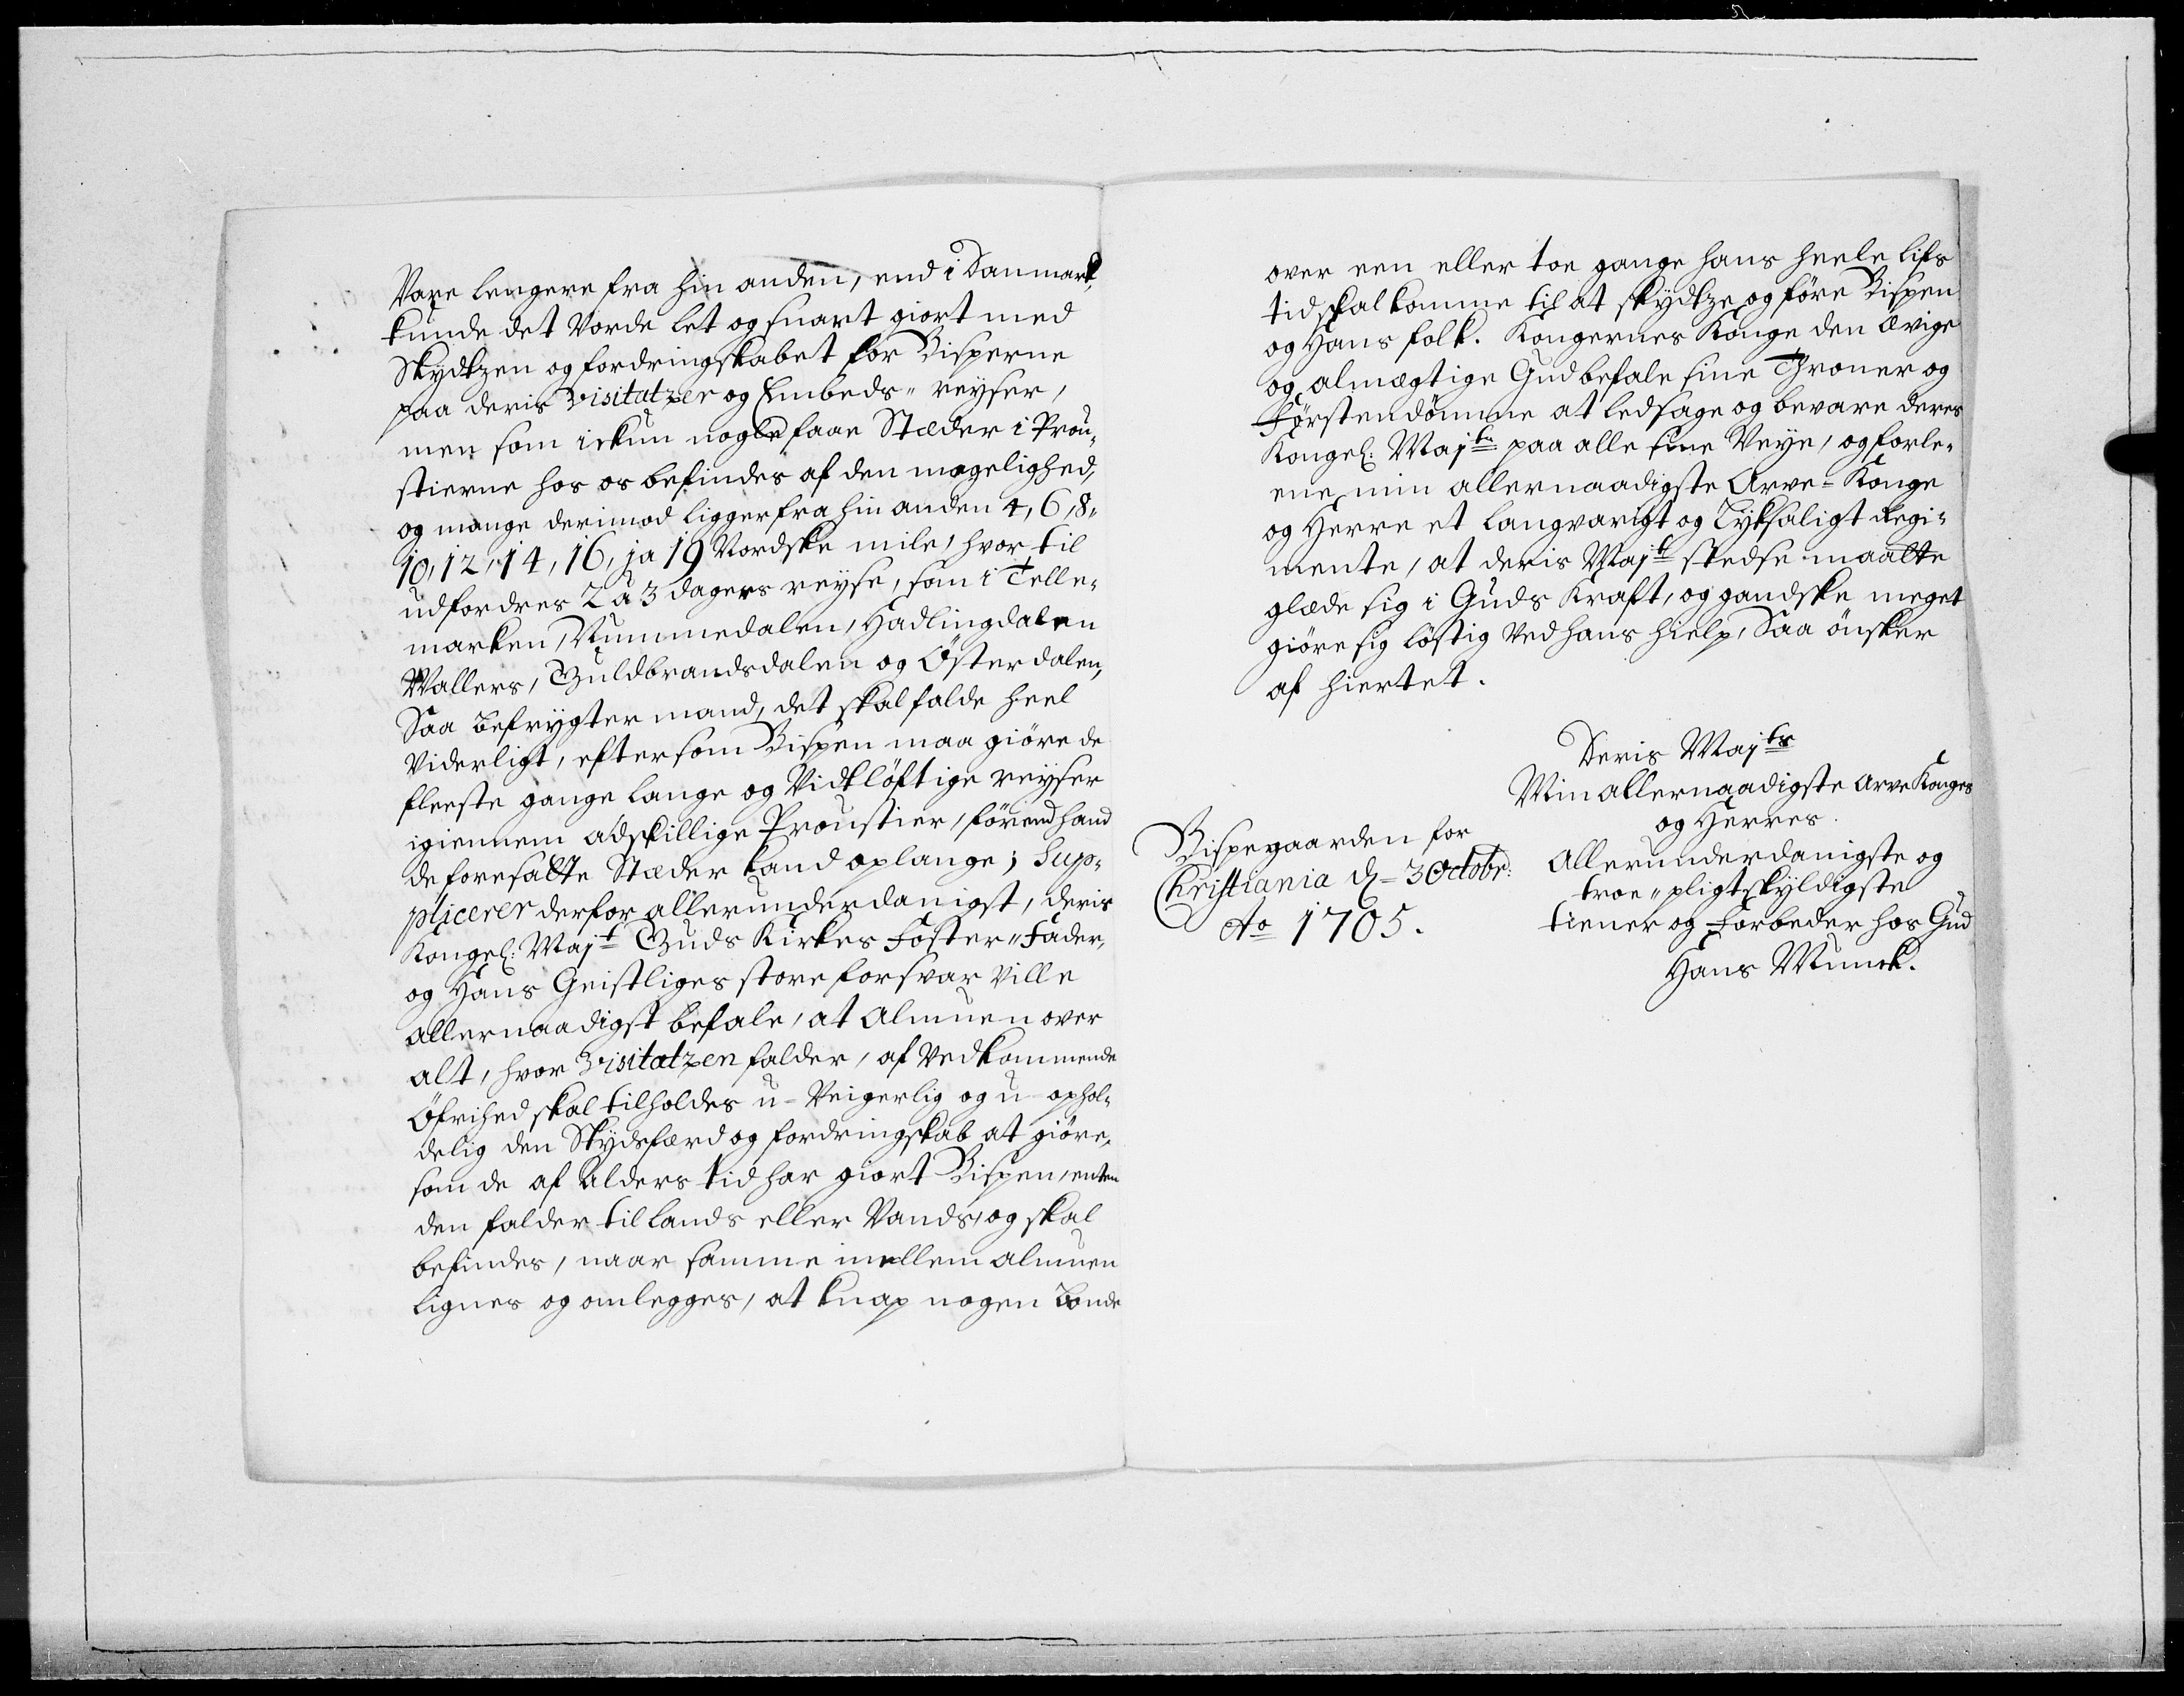 Vare lengere fra hin anden, end i Danmark,
kunde det Vorde let og snart giort med
Skydtzen og fordringskabet for Bisperne
paa deris Visitatzer og Embeds-reyser,
men som ickun nogle faae Stæder i Prou-
stierne hos os befindes af den magelighed,
og mange derimod ligger fra hin anden 4, 6, 8,
10, 12, 14, 16, ja 19 Nordske mile, hvor til
udfordres 2 a 3 dagers reyse, som i Telle-
marken, Nummedalen, Hadlingdalen
Wallers, Guldbrandsdalen og Österdalen,
Saa befrygter mand, det skal falde heel
Viderligt, eftersom Bispen maa giöre de
fleeste gange lange og Vidtlöftige reyser
igiennem adskillige Proustier, förend hand
de foresatte Stæder kand oplange; Sup-
plicerer derfor allerunderdanigst, deris
Kongel: Majt Guds Kirkes Foster-Fader,
og Hans Geistliges store forsvar ville
allernaadigst befale, at Almuen over
alt, hvor Visitatzen falder, af Vedkommende
Öfrihed skal tilholdes u-Veigerlig og u-ophol-
delig den Skydsfærd og fordringskab at giöre,
som de af Alders tid har giort Bispen, enten
den falder til lands eller Vands, og skal
befindes, naar samme imellem almuen
lignes og omlegges, at knap nogen Bonde
over een eller toe gange hans heele lifs
tid skal komme til at skydtze og före Bispen
og Hans folk. Kongernes Konge den Ævige
og almægtige Gud befale sine Throner og
Förstendömme at ledsage og bevare deres
Kongel: Majts paa alle sine Veye, og forle-
ene min allernaadigste Arve-Konge
og Herre et langvarigt og Lyksaligt Regi-
mente, at deris Majt stedse maatte
glæde sig i Guds Kraft, og gandske meget
giöre sig löstig ved hans hielp, Saa önsker
af hiertet.
Deris Majts
Min allernaadigste Arve Konges
og Herres
Bispegaarden for
Christiania d= 3 Octobr:
Ao 1705.
Allerunderdanigste og
troe-pligtskyldigste
tiener og forbeder hos Gud
Hans Munck.